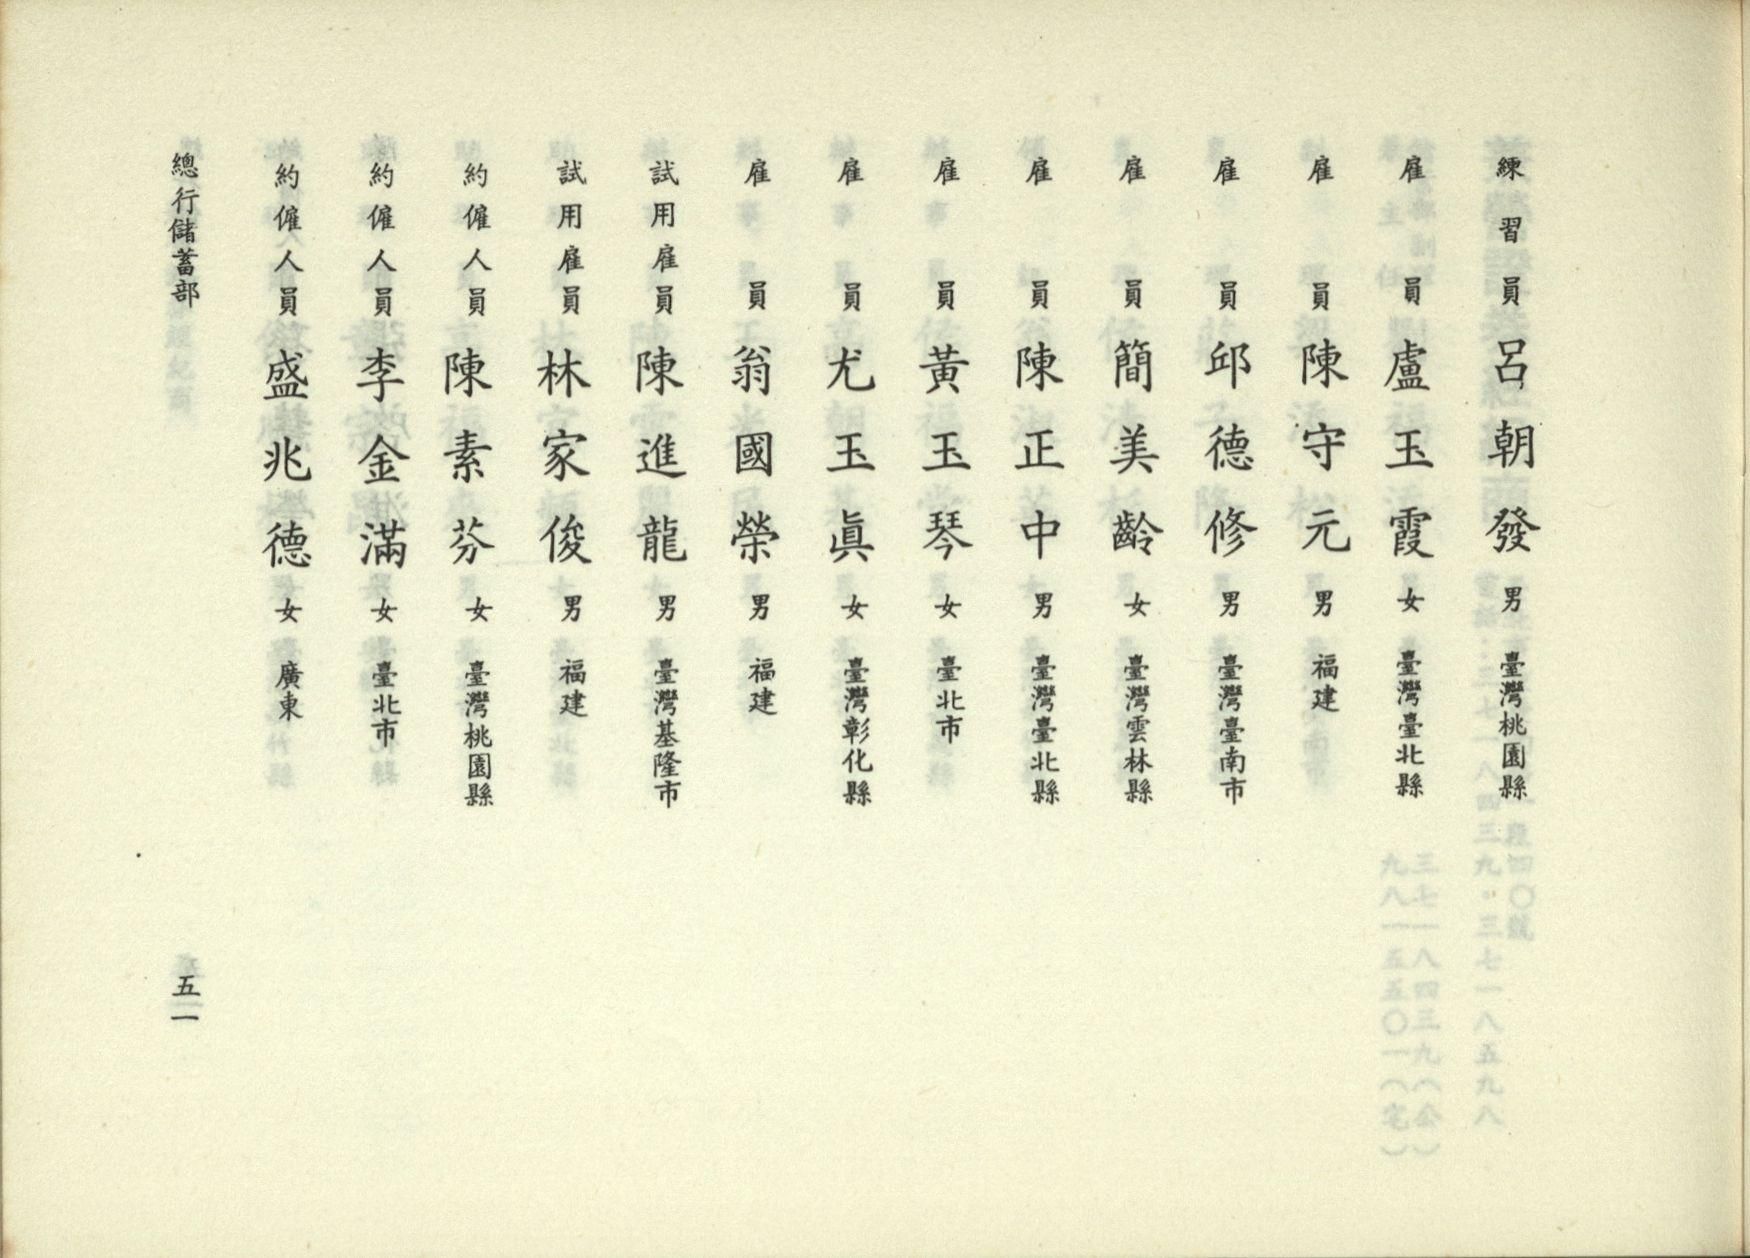 練習員 呂朝發 男 臺灣桃園縣
雇員 盧玉霞 女 臺灣臺北縣
雇員 陳守元 男 福建
雇員 邱德修 男 臺灣臺南市
雇員 簡美齡 女 臺灣雲林縣
雇員 陳正中 男 臺灣臺北縣
雇員 黃玉琴 女 臺北市
雇員 尤玉眞 女 臺灣彰化縣
雇員 翁國榮 男 福建
試用雇員 陳進龍 男 臺灣基隆市
試用雇員 林家俊 男 福建
約僱人員 陳素芬 女 臺灣桃園縣
約僱人員 李金滿 女 臺北市
約僱人員 盛兆德 女 廣東
總行儲蓄部
五一